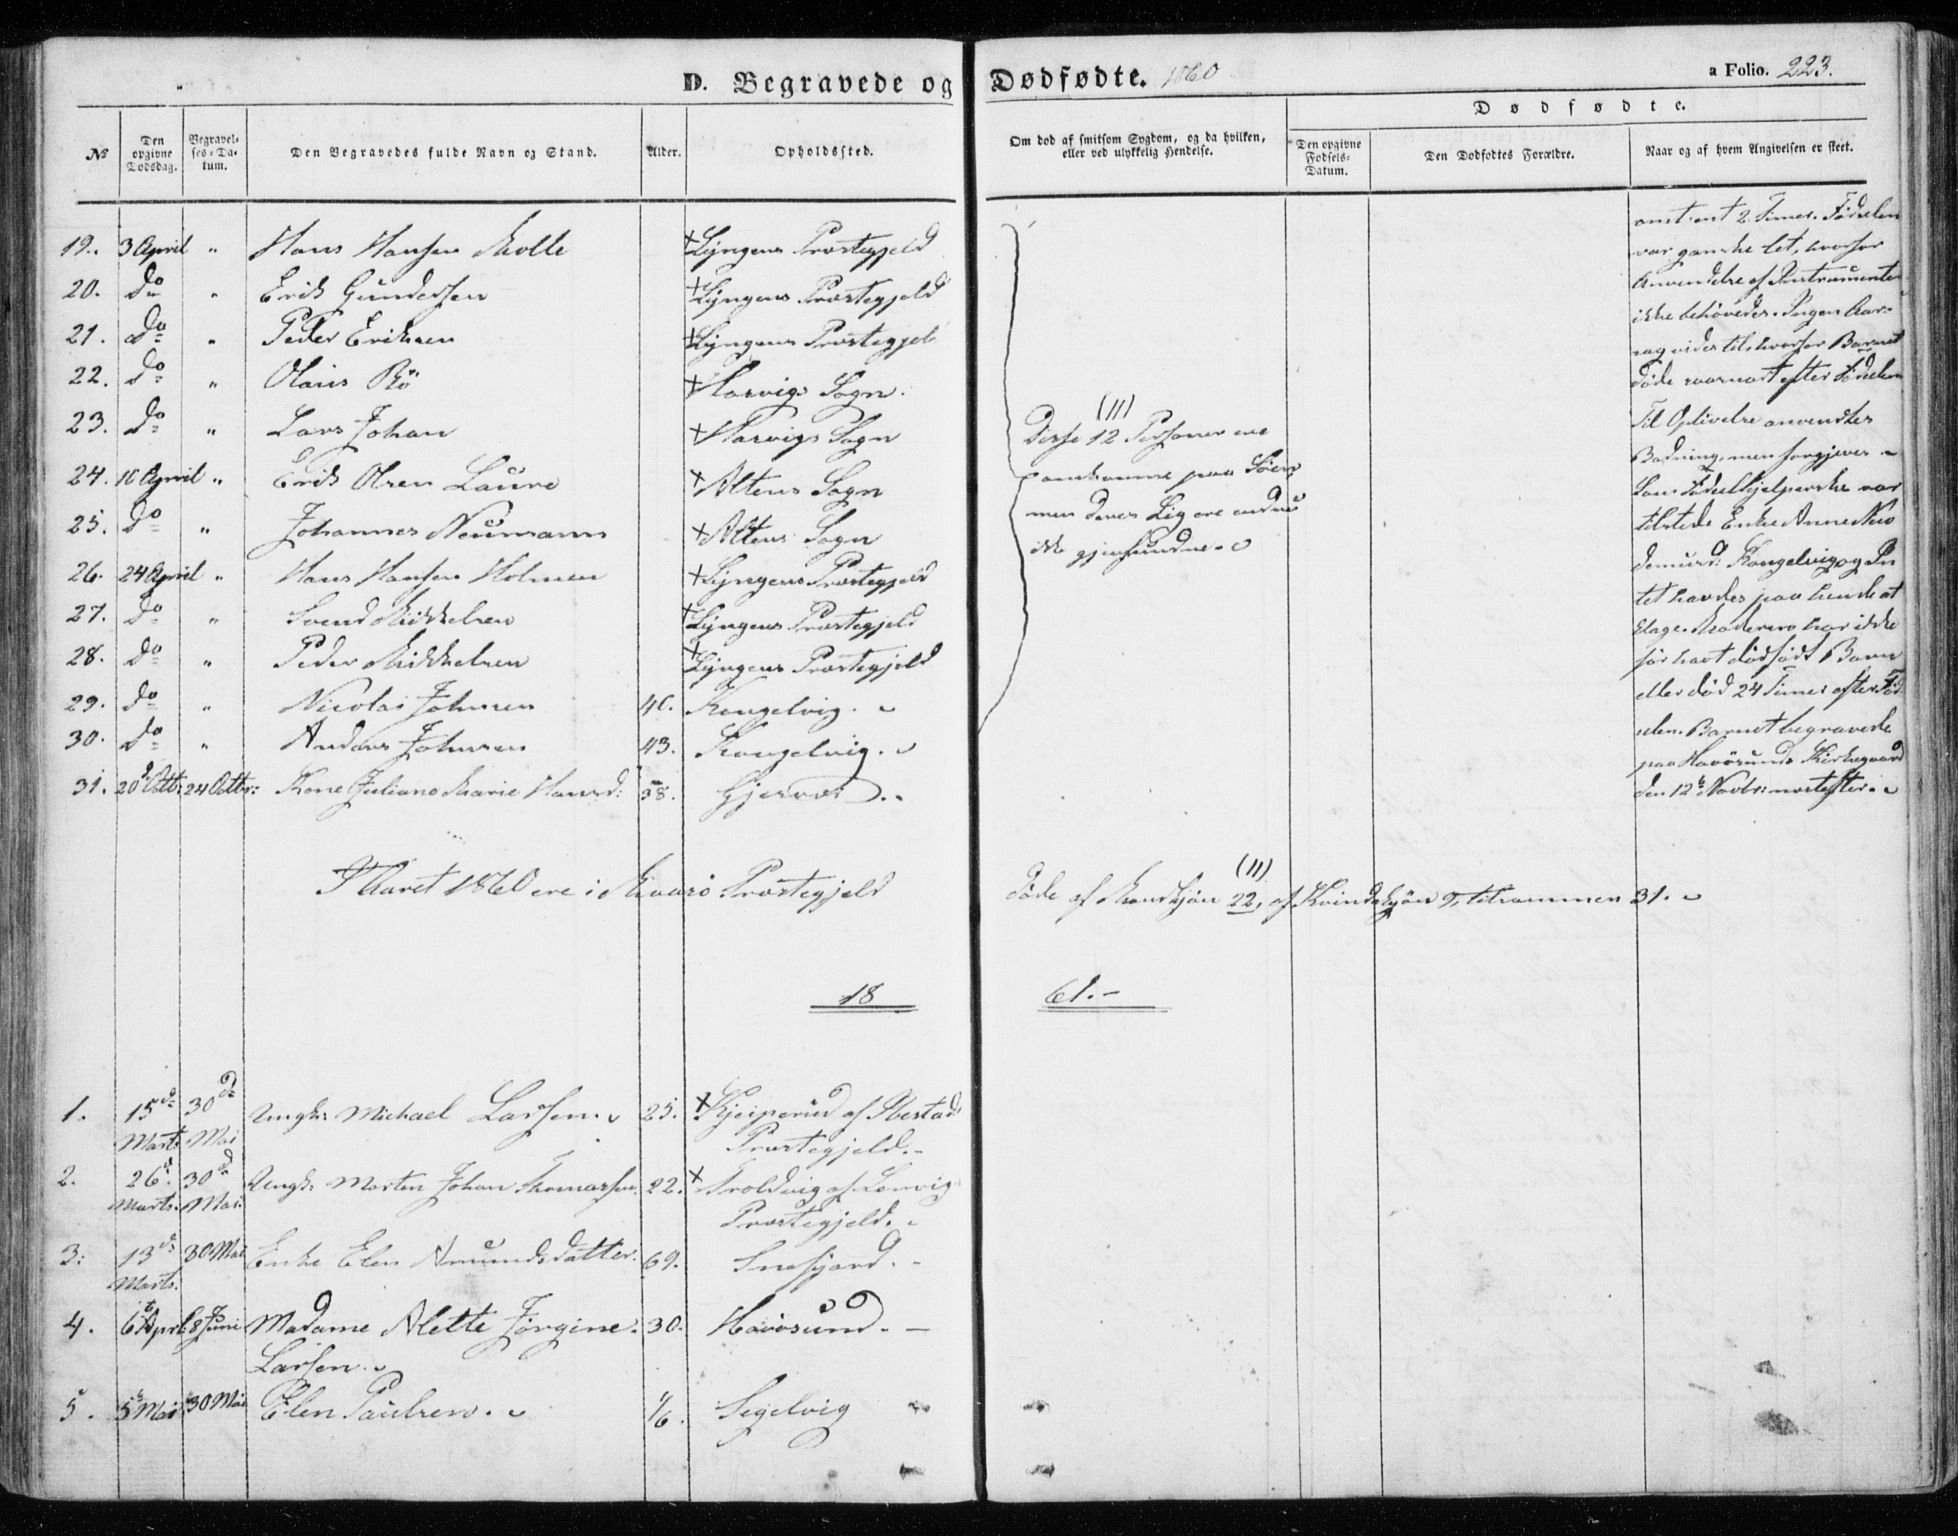 D. Begravede og Dødfødte. 1860
a Folio. 223.
Dødfødte.
No
Den opgivne Dødsdag.
Begravelses-Datum.
Den Begravedes fulde Navn og Stand.
Alder.
Opholdssted.
Om død af smitsom Sygdom, og da hvilken, eller ved ulykkelig Hendelse.
Den opgivne Fødsels-Datum.
Den Dødfødtes Forældre.
Naar og af hvem Angivelsen er skeet.
19. 3 April " Hans Hansen Molle + Lyngens Præstegjeld
20. Do " Erik Gundersen + Lyngens Præstegjeld
21. Do " Peder Eriksen + Lyngens Præstegjel
22. Do " Olaus Bö + Hasvigs Sogn.
23. Do " Lars Johan + Hasvigs Sogn
24. 16 April " Erik Olsen Laure + Altens Sogn
25. Do " Johannes Neumann + Altens Sogn
26. 24 April " Hans Hansen Holmen + Lyngens Præstegjeld
27. Do " Svend Mikkelsen + Lyngens Præstegjeld
28. Do " Peder Mikkelsen + Lyngens Præstegjeld
29. Do " Nicolai Johnsen 40. Kongelvig.
30. Do " Anders Johnsen 43. Kongelvig.
31. 20d Octb: 24 Octbr: Kone Juliane Marie Hansd: 38. Gjesvær.
(11)
Disse 12 Personer ere
omkomne paa Søen
men deres Lig ere endnu
ikke gjenfundne.
omtrent 2 Timer. Fødselen
var ganske let, hvorfor
Anvendelse af Instrumenter
ikke behøvedes. Ingen Aar-
sag vides til, hvorfor Barnet
døde snart efter Fødselen
Til Oplivelse anvendtes
Badning, men forgjeves.
Som Fødselshjelperske var
tilstede Enke Anne Nico
demusd: Kongelvig og In
tet havdes paa hende at
klage. Moderen har ikke
før havt dødfødt Barn
eller død 24 Timer efter Fød
selen. Barnet begravede
paa Havösunds Kirkegaard
den 12te Novbr: næstefter.
I Aaret 1860 ere i Maasö Præstegjeld døde af Mandkjön 22, (11) af Kvindekjön 9, tilsammen 31.
18 61.-
1. 15de Marts. 30de Mai Ungk: Michael Larsen. 25. + Kjeiperud af Ibestad
Præstegjeld.
2. 26d Marts. 30d Mai. Ungk: Morten Johan Thomassen. 22. + Troldvig af Lenvig
Præstegjeld.
3. 13de Marts. 30 Mai Enke Elen Amundsdatter. 69. Snefjord.
4. 6t April 8 Juni Madame Alette Jörgine 30. Havösund.
Larsen.
5. 5t Mai 30 Mai Elen Paulsen. 1/6. Segelvig